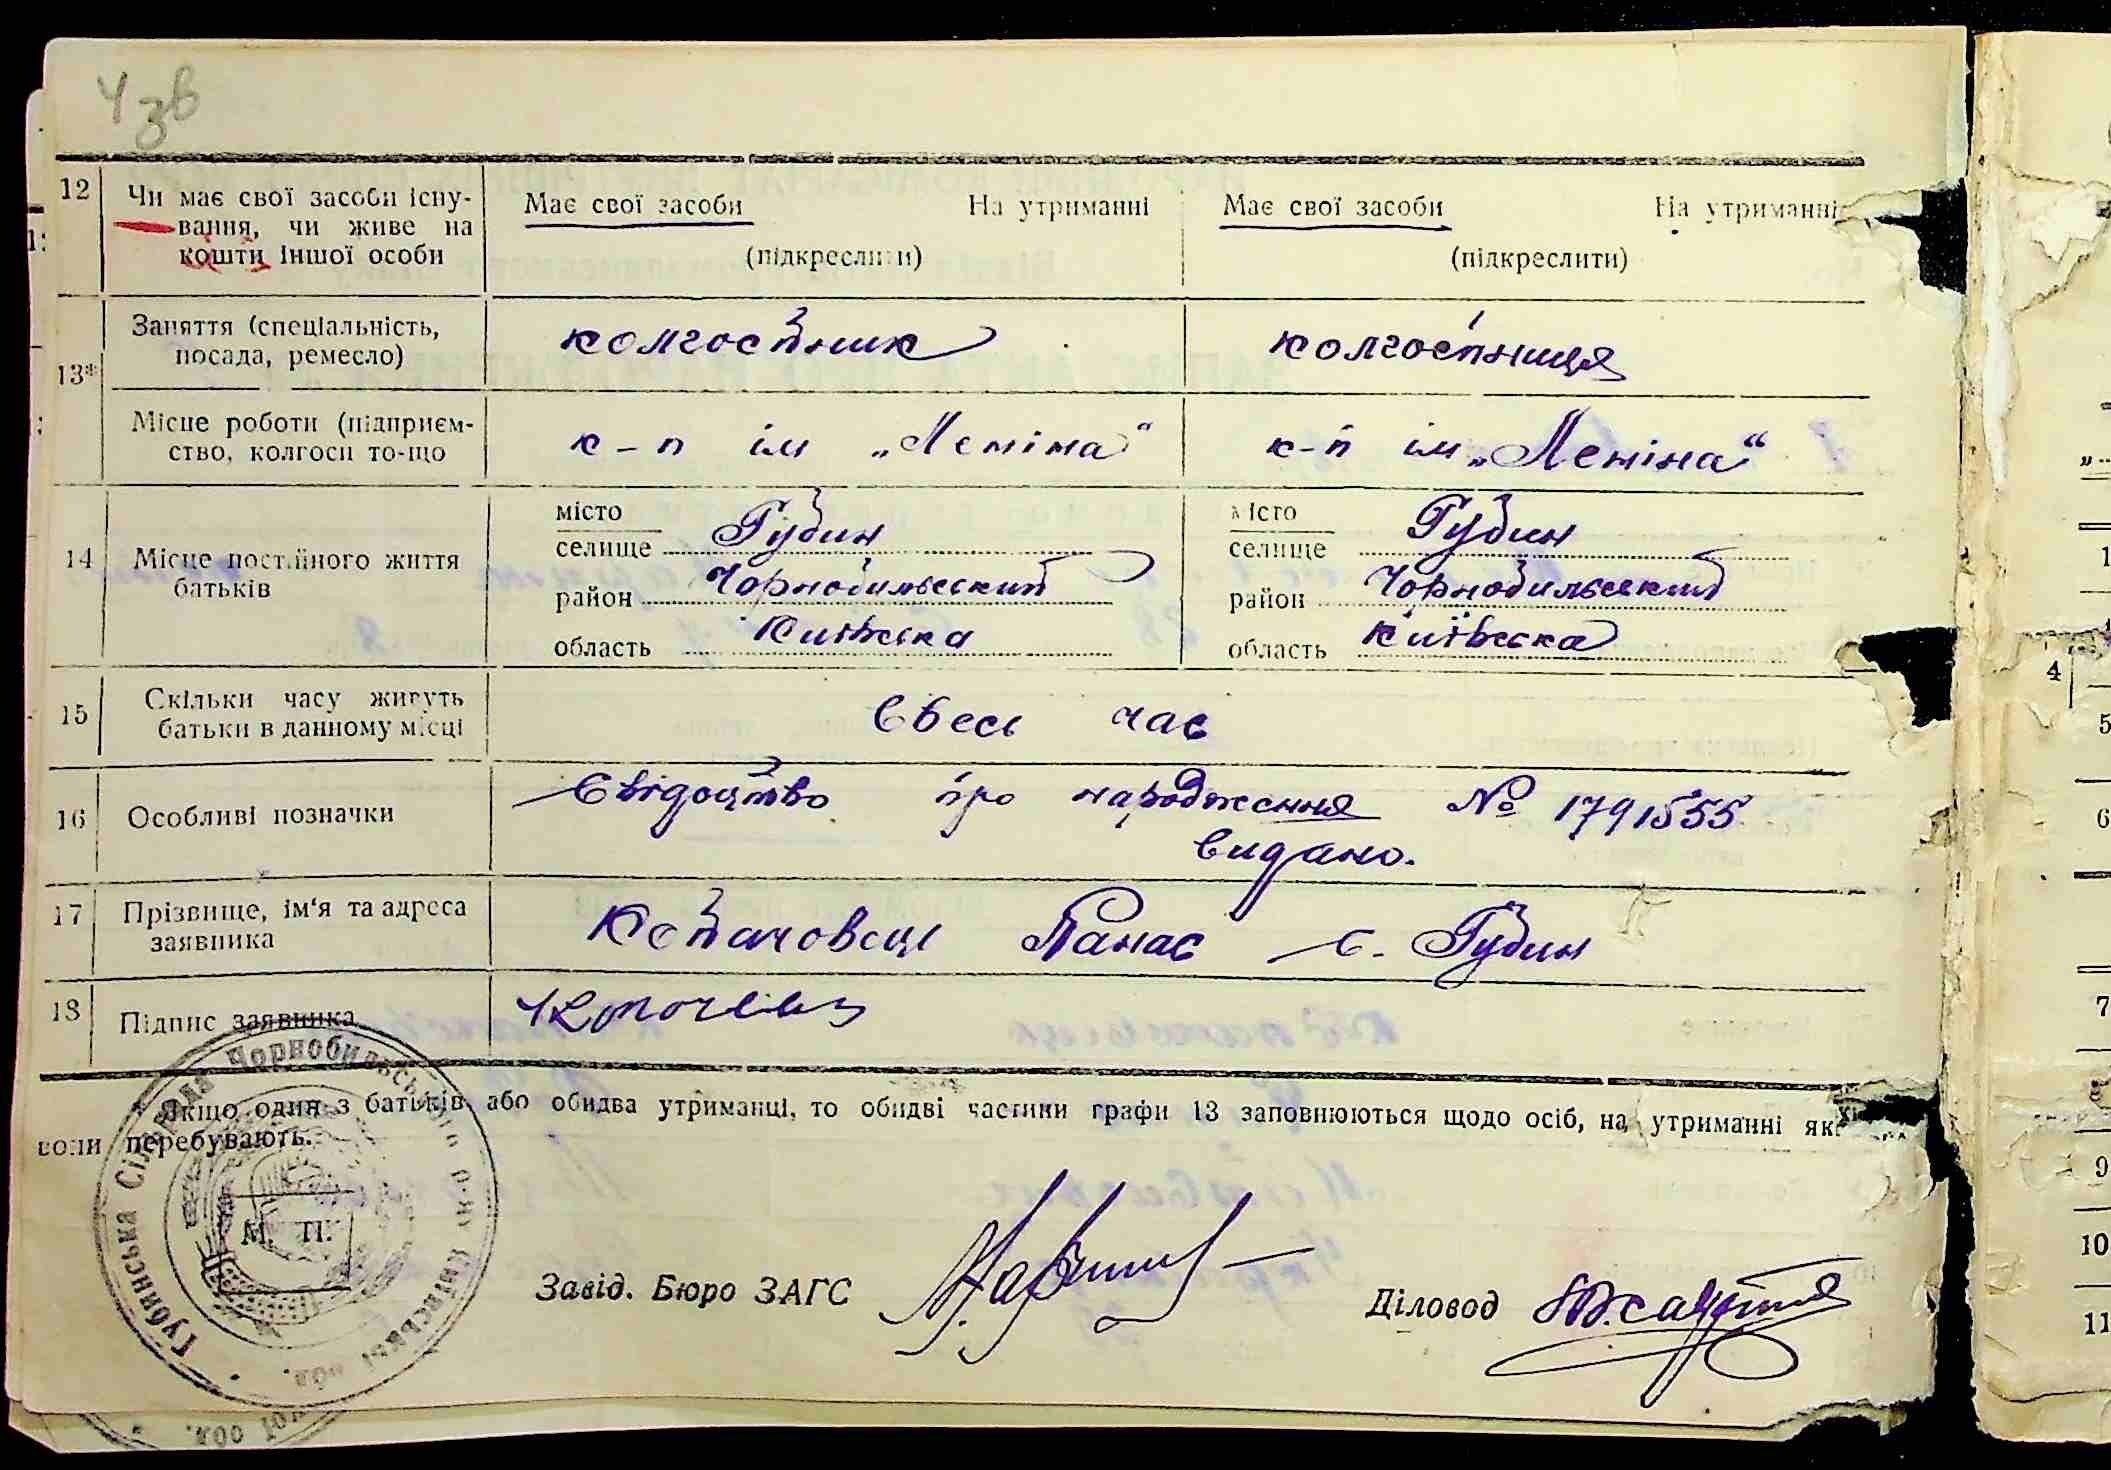 43в
12
Чи має свої засоби існу-
вання, чи живе на
кошти іншої особи
Має свої засоби На утриманні
(підкреслити)
Має свої засоби На утриманні
(підкреслити)
13*
Заняття (спеціальність,
посада, ремесло)
колгоспник
колгоспниця
Місце роботи (підприєм-
ство, колгосп то-що
к-п ім „Леніна“
к-п ім „Леніна“
14
Місце постійного життя
батьків
місто
селище Губин
район Чорнобильский
область Київська
місто
селище Губин
район Чорнобильский
область Київська
15
Скільки часу живуть
батьки в данному місці
ввесь час
16
Особливі позначки
Свідоцтво про народження № 1791555
видано.
17
Прізвище, ім‘я та адреса
заявника
Копачовець Панас с. Губин
18
Підпис заявника
Якщо один з батьків або обидва утриманці, то обидві частини графи 13 заповнюються щодо осіб, на утриманні яких
вони перебувають.
Губинська Сільрада Чорнобильського р-ну Київської обл.
М. П.
Завід. Бюро ЗАГС
Діловод
4
5
6
7
8
9
10
11